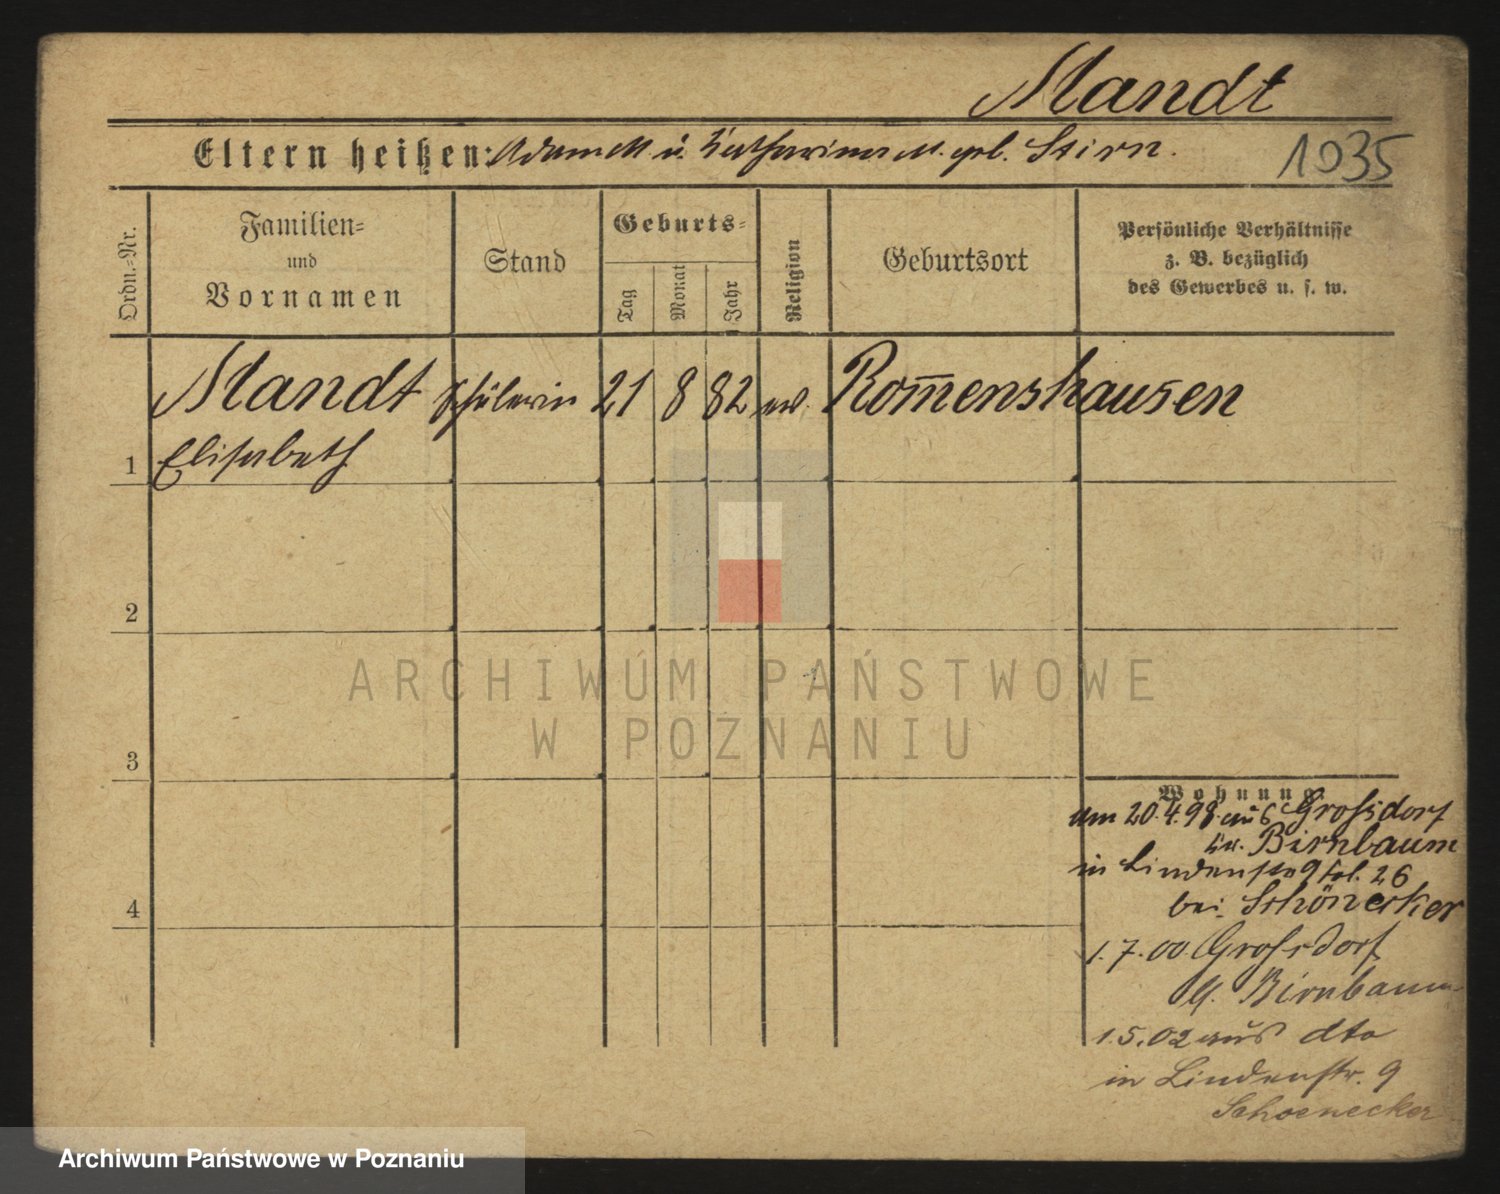 Mandt
Eltern heißen: Adam M u. Katharina M. geb. Stirn.
1035
Ordn.-Nr.
Familien-
und
Vornamen
Stand
Geburts-
Tag
Monat
Jahr
Religion
Geburtsort
Persönliche Verhältnisse
z. B. bezüglich
des Gewerbes u. s. w.
Mandt Schülerin 21 8 82 ev. Rom̅enshausen
1 Elisabeth
2
ARCHIWUM PAŃSTWOWE
W POZNANIU
3
Wohnung
am 20.4.98. aus Grossdorf
Kr. Birnbaum
in Lindenstr 9 fol. 26
bei Schönecker
1.7.00 Grossdorf
Birnbaum
4
1.5.02 aus dto
in Lindenstr. 9
Schoenecker
Archiwum Państwowe w Poznaniu